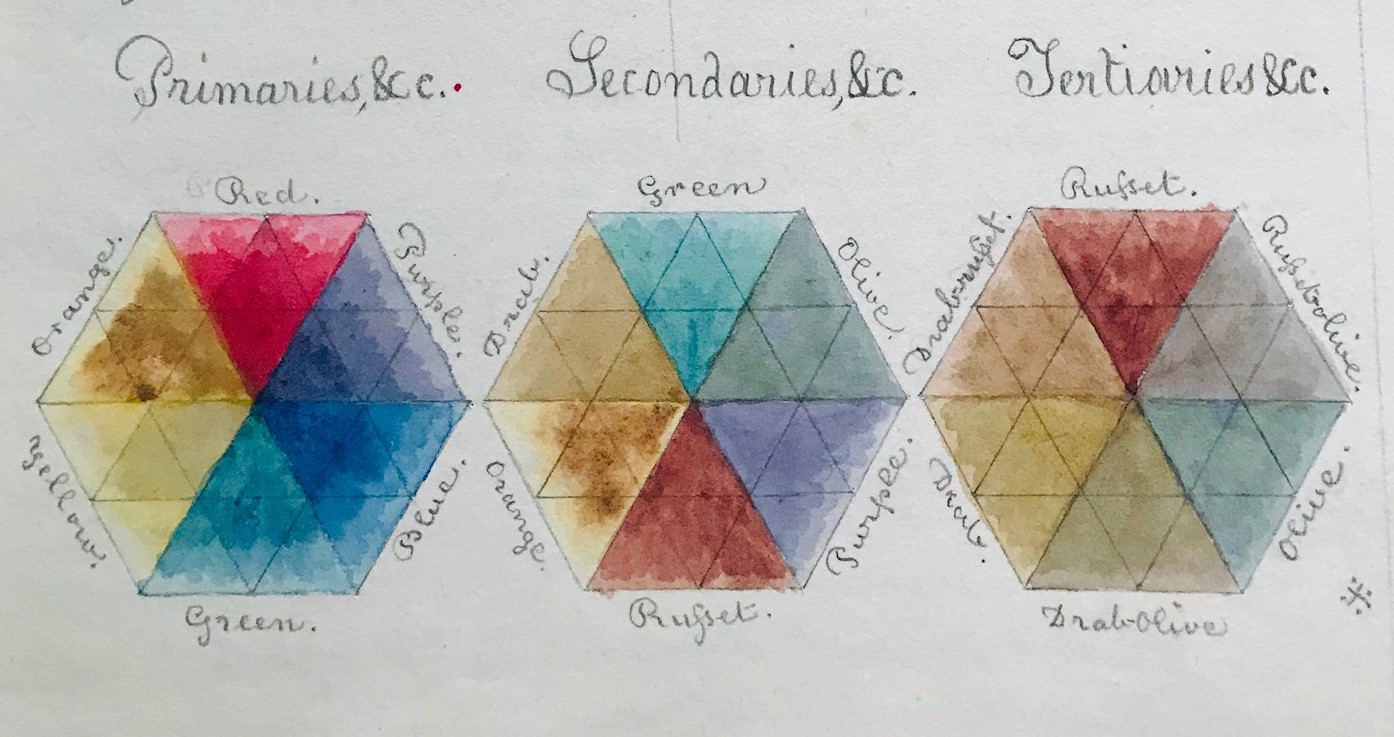 Primaries, &c.
Secondaries, &c.
Tertiaries &c.
Red.
Purple.
Blue.
Green.
Yellow.
Orange.
Green
Olive.
Purple.
Russet.
Orange.
Drab.
Russet.
Russet-olive.
Olive.
Drab-Olive
Drab.
Drab-russet.